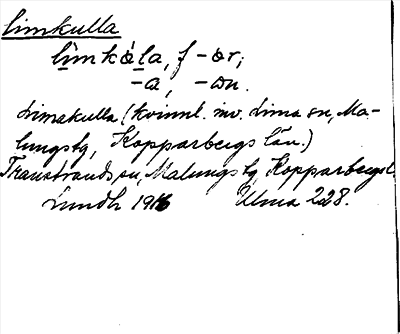 limkulla
lìmkála, f -ar,
-a, -an.
Limakulla (kvinnl. inv. Lima sn, Ma-
lungs tg, Kopparbergs län.)
Transtrands sn, Malungs tg, Kopparbergs l.
Lundh 1916 Ulma 228.